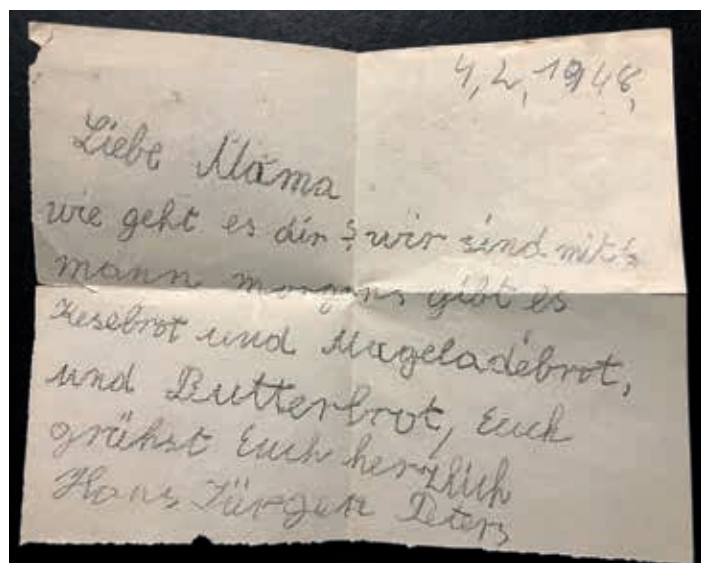 4,2,1948,
Liebe Mama
wie geht es dir ? wir sind mit 6
mann morgens gibt es
Kesebrot und Mageladebrot,
und Butterbrot, Euch
grühst Euch herzlich
Hans Jürgen Peters